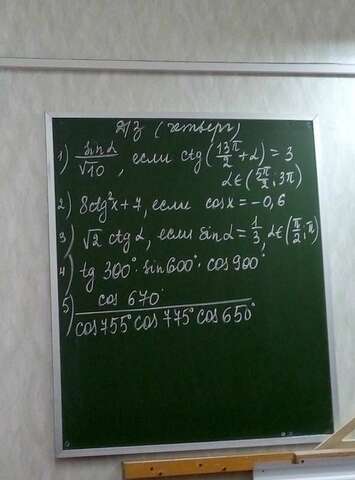 Д/з (четверг)
1) sin α / √10 , если ctg(13π/2 + α) = 3
α ∈ (5π/2; 3π)
2) 8ctg²x + 7, если cos x = -0,6
3) √2 ctg α, если sin α = 1/3, α ∈ (π/2; π)
4) tg 300° · sin 600° · cos 900°
5) cos 670° / cos 755° cos 775° cos 650°